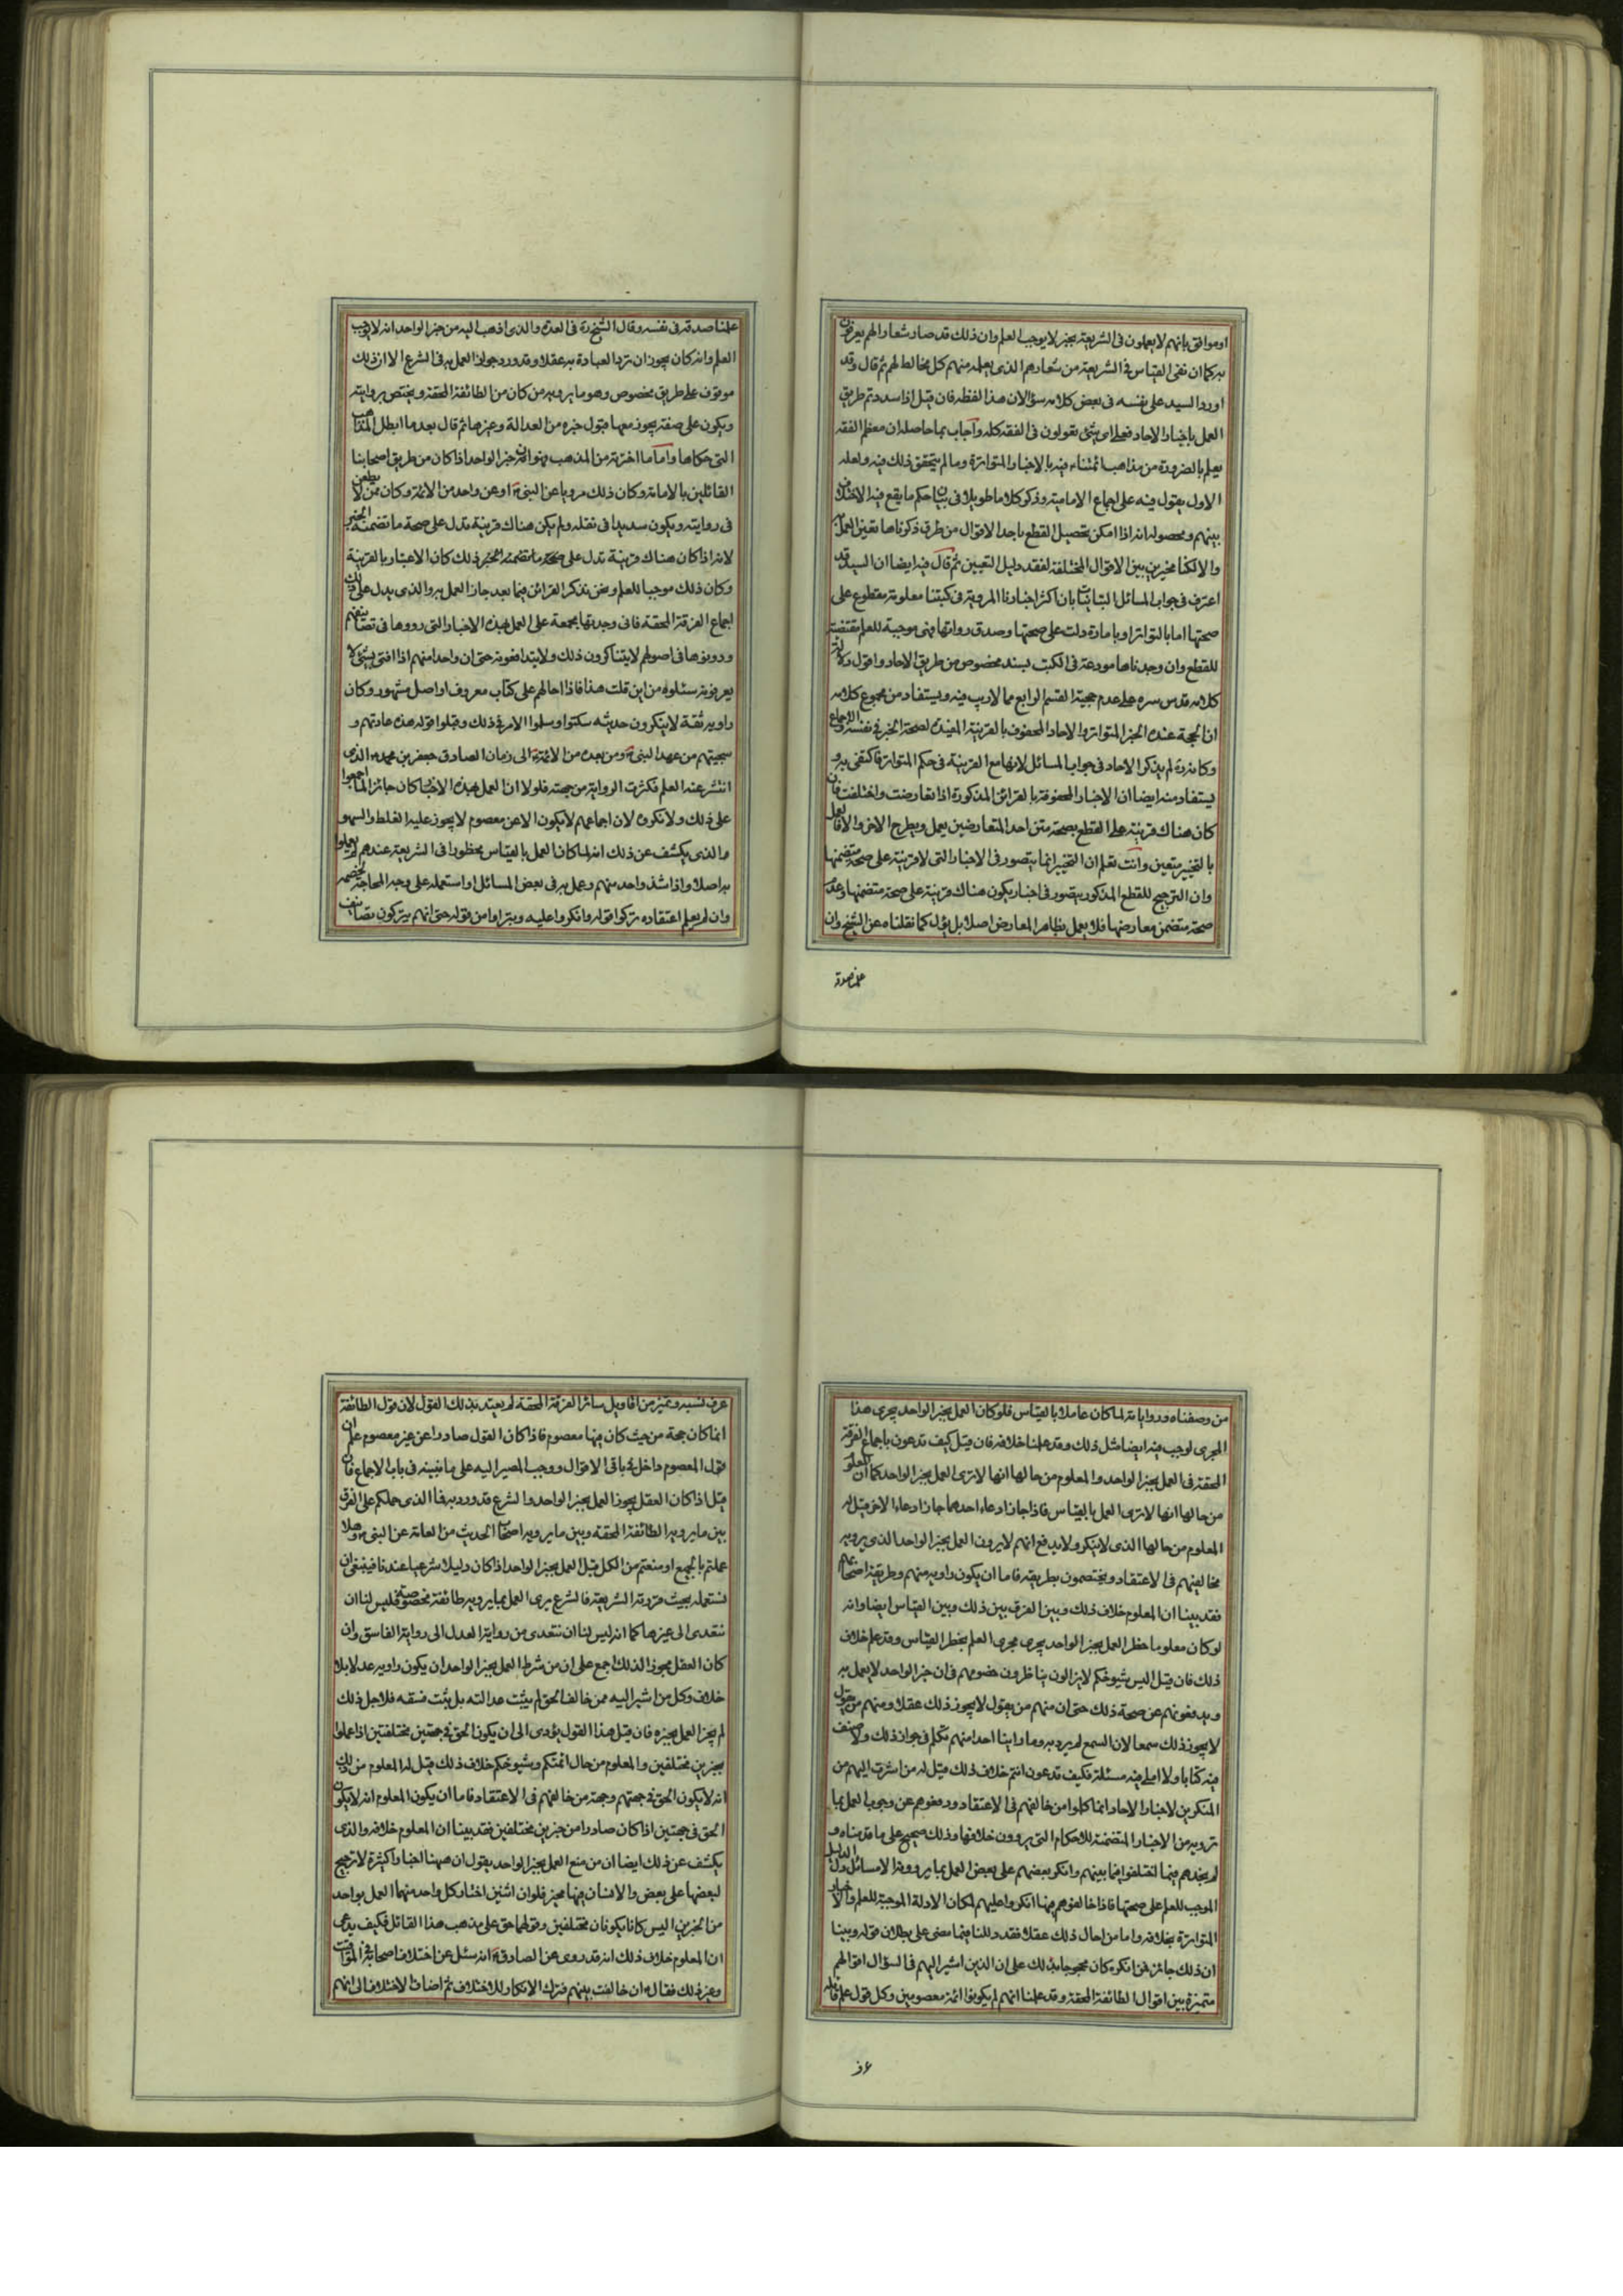 او موافق بانهم لا يعملون فى الشريعة بخبر لا يوجب العلم وان ذلك قد صار شعارا لهم يعرفون
به كما ان نفى القياس فى الشريعة من شعارهم الذى يعلمه منهم كل مخالط لهم ثم قال وقد
اورد السيد على نفسه فى بعض كلامه سؤالا هذا لفظه فان قيل اذا سددتم طريق
العمل باخبار الاحاد فعلى اى شئ تقولون فى الفقه كله واجاب بما حاصله ان معظم الفقه
يعلم بالضرورة من مذاهب ائمتنا فيه بالاخبار المتواترة وما لم يتحقق ذلك فيه ولعله
الاول يقول فيه على اجماع الامامية وذكر كلاما طويلا فى بيان حكم ما يقع فيه الاختلاف
بينهم ومحصوله انه اذا امكن تحصيل القطع باحد الاقوال من طرق ذكرناها تعين العمل
والا لكنا مخيرين بين الاقوال المختلفة لفقد دليل التعيين ثم قال فيه ايضا ان السيد قد
اعترف فى جواب المسائل التبانيات بان اكثر اخبارنا المروية فى كتبنا معلومة مقطوع على
صحتها اما بالتواتر او بامارة دلت على صحتها وصدق رواتها فهى موجبة للعلم مقتضية
للقطع وان وجدناها مودعة فى الكتب بسند مخصوص من طريق الاحاد واقول دلالة
كلامه قدس سره على عدم حجية القسم الرابع مما لا ريب فيه ويستفاد من مجموع كلامه
ان الحجة عنده الخبر المتواتر والاحاد المحفوف بالقرينة المفيدة لصحة الخبر فى نفسه والاجماع
وكانه ره لم يذكر الاحاد فى جواب المسائل لانها مع القرينة فى حكم المتواتر فاكتفى به و
يستفاد منه ايضا ان الاخبار المحفوفة بالقرائن المذكورة اذا تعارضت واختلفت فان
كان هناك قرينة على القطع بصحة متن احد المتعارضين يعمل ويطرح الاخر والا فالعمل
بالتخيير متعين وانت تعلم ان التخيير انما يتصور فى الاخبار التى لا قرينة على صحة متضمنها
وان الترجيح للقطع المذكور يتصور فى اخبار يكون هناك قرينة على صحة متضمنها وعدم
صحة متضمن معارضها فلا يعمل بظاهر المعارض اصلا بل يؤول كما نقلناه عن الشيخ وان
علمنا صدقه
علمنا صدقه فى نفسه وقال الشيخ ره فى العدة والذى اذهب اليه من خبر الواحد انه لا يوجب
العلم وانه كان يجوز ان ترد العبادة به عقلا وقد ورد جواز العمل به فى الشرع الا ان ذلك
موقوف على طريق مخصوص وهو ما يرويه من كان من الطائفة المحقة ويختص بروايته
ويكون على صفة يجوز معها قبول خبره من العدالة وغيرها ثم قال بعد ما ابطل المذاهب
التى حكاها واما ما اخترته من المذهب فهو ان خبر الواحد اذا كان من طريق اصحابنا
القائلين بالامامة وكان ذلك مرويا عن النبى ص او عن واحد من الائمة وكان ممن لا يطعن
فى روايته ويكون سديدا فى نقله ولم يكن هناك قرينة تدل على صحة ما تضمنه الخبر
لانه اذا كان هناك قرينة تدل على صحة ما تضمنه الخبر ذلك كان الاعتبار بالقرينة
وكان ذلك موجبا للعلم ونحن نذكر القرائن فيما بعد جاز العمل به والذى يدل على ذلك
اجماع الفرقة المحقة فانى وجدتها مجمعة على العمل بهذه الاخبار التى رووها فى تصانيفهم
ودونوها فى اصولهم لا يتناكرون ذلك ولا يتدافعونه حتى ان واحدا منهم اذا افتى بشئ لا
يعرفونه سئلوه من اين قلت هذا فاذا احالهم على كتاب معروف او اصل مشهور وكان
راويه ثقة لا ينكرون حديثه سكتوا وسلموا الامر فى ذلك وقبلوا قوله هذه عادتهم و
سجيتهم من عهد النبى ص ومن بعده من الائمة الى زمان الصادق جعفر بن محمد ع الذى
انتشر عنه العلم فكثرت الرواية من جهته فلولا ان العمل بهذه الاخبار كان جائزا لما اجمعوا
على ذلك ولا نكروه لان اجماعهم لا يكون الا عن معصوم لا يجوز عليه الغلط والسهو
والذى يكشف عن ذلك انه لما كان العمل بالقياس محظورا فى الشريعة عندهم لم يعملوا
به اصلا واذا شذ واحد منهم وعمل به فى بعض المسائل او استعمله على وجه المحاجة لخصمه
وان لم يعلم اعتقاده تركوا قوله وانكروا عليه وتبراوا من قوله حتى انهم يتركون تصانيف
من وصفناه ورواياته لما كان عاملا بالقياس فلو كان العمل بخبر الواحد يجرى هذا
المجرى لوجب فيه ايضا مثل ذلك وقد علمنا خلافه فان قيل كيف تدعون باجماع الفرقة
المحقة فى العمل بخبر الواحد والمعلوم من حالها انها لا ترى العمل بخبر الواحد كما ان المعلوم
من حالها انها لا ترى العمل بالقياس فاذا جاز ادعاء احدهما جاز ادعاء الاخر قيل له
المعلوم من حالها الذى لا ينكر ولا يدفع انهم لا يرون العمل بخبر الواحد الذى يرويه
مخالفيهم فى الاعتقاد ويختصمون بطريقه فاما ان يكون راويه منهم وطريقة اصحابهم
فقد بينا ان المعلوم خلاف ذلك وبين الفرق بين ذلك وبين القياس ايضا وانه
لو كان معلوما حظر العمل بخبر الواحد يجرى مجرى العلم بحظر القياس وقد علم خلاف
ذلك فان قيل اليس شيوخكم لا يزالون يناظرون خصومهم فى ان خبر الواحد لا يعمل به
ويدفعونهم عن صحة ذلك حتى ان منهم من يقول لا يجوز ذلك عقلا ومنهم من يقول
لا يجوز ذلك سمعا لان السمع لم يرد به وما راينا احدا منهم تكلم فى جواز ذلك ولا صنف
فيه كتابا ولا املى فيه مسئلة فكيف تدعون انتم خلاف ذلك قيل له من اشرت اليهم من
المنكرين لاخبار الاحاد انما كلموا من خالفهم فى الاعتقاد ودفعوهم عن وجوب العمل بما
ترويه من الاخبار المتضمنة للاحكام التى يروون خلافها وذلك صحيح على ما قدمناه و
لم نجدهم فيما اختلفوا فيما بينهم وانكر بعضهم على بعض العمل بما يروونه الا مسائل دل الدليل
الموجب للعلم على صحتها فاذا خالفوهم فيها انكروا عليهم لمكان الادلة الموجبة للعلم والاخبار
المتواترة بخلافه واما من احال ذلك عقلا فقد دللنا فيما مضى على بطلان قوله وبينا
ان ذلك جائز فمن انكره كان محجوجا بذلك على ان الذين اشير اليهم فى السؤال اقوالهم
متميزة بين اقوال الطائفة المحقة وقد علمنا انهم لم يكونوا ائمة معصومين وكل قول علم قائله
عرف
عرف نسبه وتميز من اقاويل سائر الفرقة المحقة لم يعتد بذلك القول لان قول الطائفة
انما كان حجة من حيث كان فيها معصوم فاذا كان القول صادرا عن غير معصوم علم ان
قول المعصوم داخل فى باقى الاقوال ووجب المصير اليه على ما نبينه فى باب الاجماع فان
قيل اذا كان العقل يجوز العمل بخبر الواحد والشرع قد ورد به فما الذى حملكم على الفرق
بين ما يرويه الطائفة المحقة وبين ما يرويه اصحاب الحديث من العامة عن النبى ص وهلا
عملتم بالجميع او منعتم من الكل قيل العمل بخبر الواحد اذا كان دليلا شرعيا عندنا فينبغى ان
نستعمله بحيث قررته الشريعة فالشرع يرى العمل بما يرويه طائفة مخصوصة فليس لنا ان
نتعدى الى غيرها كما انه ليس لنا ان نتعدى من رواية العدل الى رواية الفاسق وان
كان العقل مجوزا لذلك اجمع على ان من شرط العمل بخبر الواحد ان يكون راويه عدلا بلا
خلاف وكل من اشير اليه ممن خالف الحق لم يثبت عدالته بل ثبت فسقه فلاجل ذلك
لم يجز العمل بخبره فان قيل هذا القول يؤدى الى ان يكون الحق فى جهتين مختلفتين اذا عملوا
بخبرين مختلفين والمعلوم من حال ائمتكم وشيوخكم خلاف ذلك قيل له المعلوم من ذلك
انه لا يكون الحق فى جهتهم وجهة من خالفهم فى الاعتقاد فاما ان يكون المعلوم انه لا يكون
الحق فى جهتين اذا كان صادرا من خبرين مختلفين فقد بينا ان المعلوم خلافه والذى
يكشف عن ذلك ايضا ان من منع العمل بخبر الواحد يقول ان هيهنا اخبارا كثيرة لا ترجيح
لبعضها على بعض والانسان فيها مخير فلو ان اثنين اختار كل واحد منهما العمل بواحد
من الخبرين اليس كانا يكونان مختلفين وقولهما حق على مذهب هذا القائل فكيف يدعى
ان المعلوم خلاف ذلك انه قد روى عن الصادق ع انه سئل عن اختلاف اصحابه فى المواقيت
وغير ذلك فقال ع انه خالفت بينهم فترك الانكار لاختلافهم ثم اضاف الاختلاف الى انهم